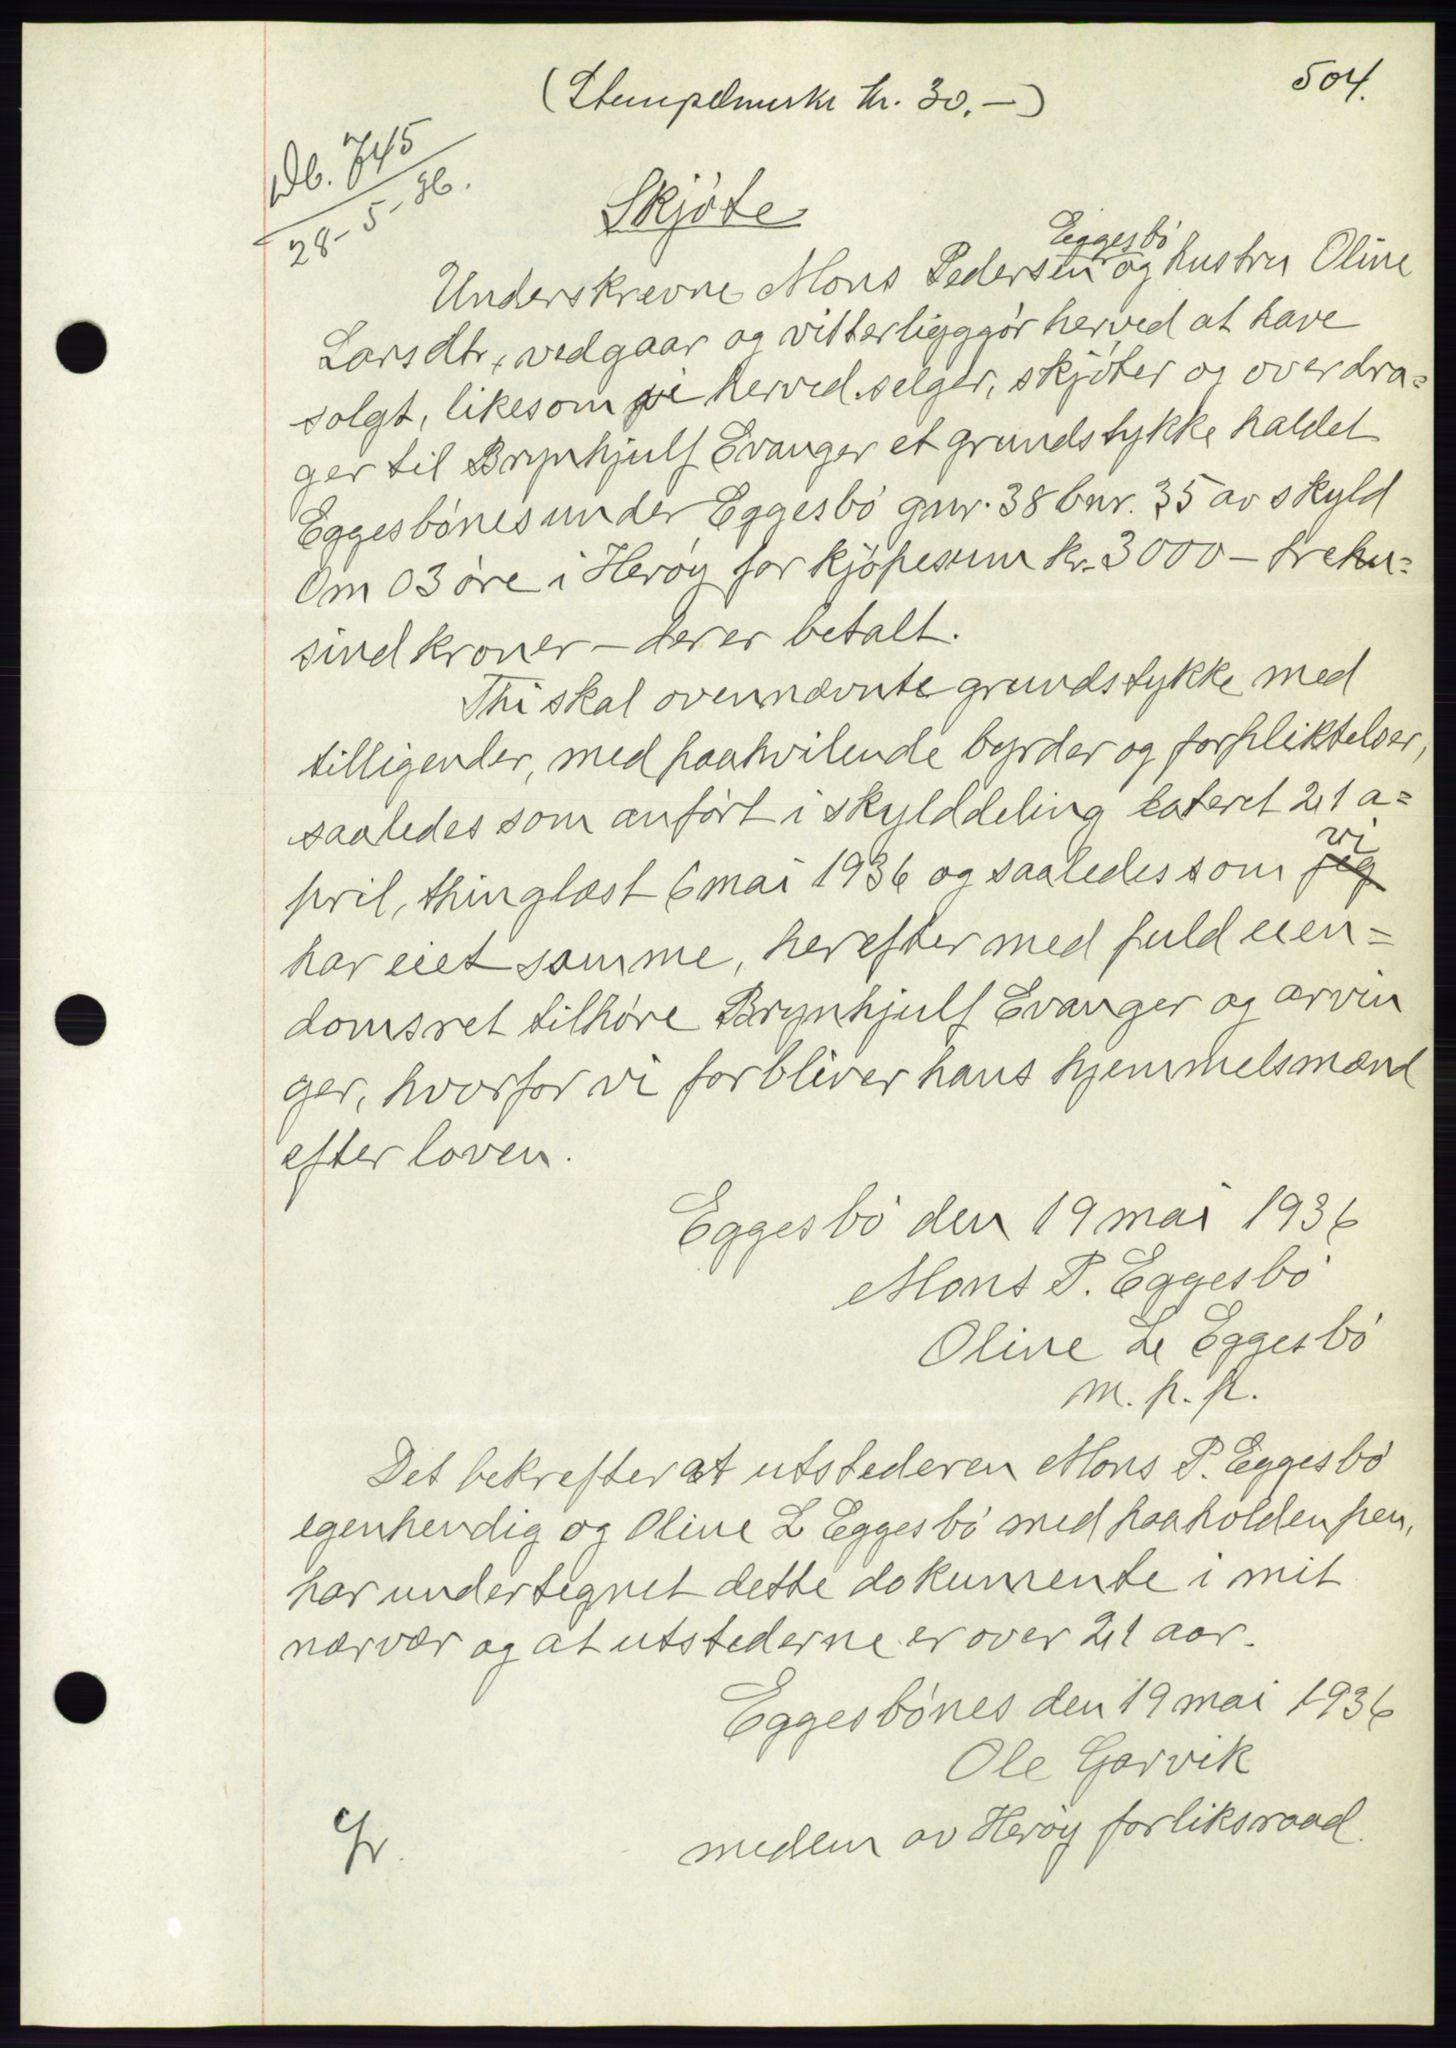 504.
(Stempelmerke kr. 30.-)
Db. 745
28-5-36.
Skjøte
Eggesbø
Underskrevne Mons Pedersen og hustru Oline
Larsdtr, vedgaar og vitterliggjør herved at have
solgt, likesom vi herved selger, skjøter og overdra=
ger til Brynhjulf Evanger et grundstykke kaldet
Eggesbønes under Eggesbø gnr. 38 bnr. 35 av skyld
Om 03 øre i Herøy for kjøpesum kr. 3000 - tretu=
sind kroner - der er betalt.
Thi skal ovennævnte grundstykke med
tilligender, med paahvilende byrder og forpliktelser,
saaledes som anført i skylddeling dateret 21 a=
vi
pril, thinglæst 6 mai 1936 og saaledes som jeg
har eiet samme, herefter med fuld eien=
domsret tilhøre Brynhjulf Evanger og arvin
ger, hvorfor vi forbliver hans hjemmelsmænd
efter loven.
Eggesbø den 19 mai 1936
Mons P. Eggesbø
Oline L Eggesbø
m. p. p.
Det bekreftes at utstederen Mons P. Eggesbø
egenhendig og Oline L Eggesbø med paaholden pen,
har undertegnet dette dokumente i mit
nærvær og at utstederne er over 21 aar.
Eggesbønes den 19 mai 1936
Ole Garvik
medlem av Herøy forliksraad.